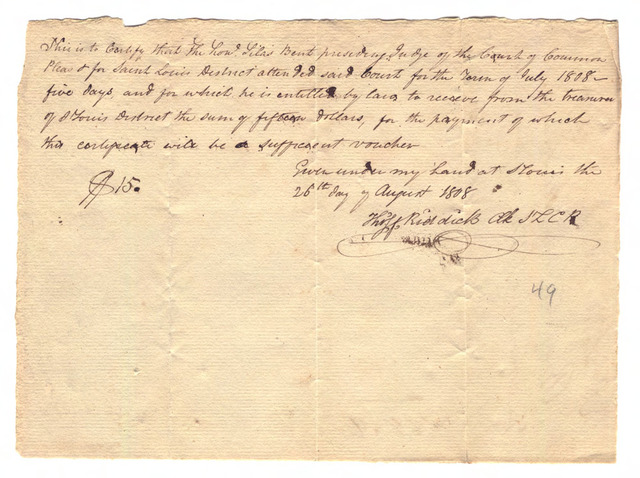 This is to Certify that The Hond. Silas Bent presiding Judge of the Court of Common
Pleas & for Saint Louis District attended said Court for the Term of July 1808 –
five days, and for which he is entitled by law to receive from the treasurer
of St Louis District the sum of fifteen dollars, for the payment of which
this certificate will be a sufficient voucher
Given under my hand at St Louis the
$15.
26th day of August 1808
Thos F Riddick Clk
49